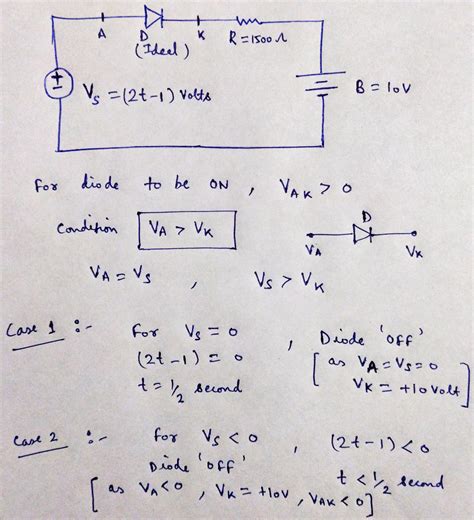 A D K R = 1500 Ω
(Ideal)
+
- Vs = (2t-1) Volts B = 10V
For diode to be ON , VAK > 0
Condition VA > VK D
VA VK
VA = Vs , Vs > VK
Case 1 :- For Vs = 0 , Diode 'off'
(2t-1) = 0 [ as VA = Vs = 0
t = 1/2 second VK = +10 Volt ]
Case 2 :- For Vs < 0 , (2t-1) < 0
Diode 'off' t < 1/2 second
[ as VA < 0 , VK = +10V , VAK < 0 ]